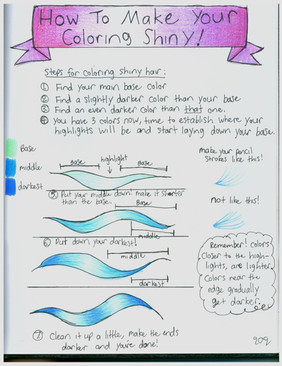 How To Make Your
Coloring Shiny!
Steps for coloring shiny hair:
① Find your main base color
② Find a slightly darker color than your base
③ Find an even darker color than that one.
④ You have 3 colors now, time to establish where your
highlights will be and start laying down your base.
Base
middle
darkest
Base
highlight
Base
make your pencil
strokes like this!
not like this!
⑤ Put your middle down! make it shorter
than the base.
Base
middle
⑥ Put down your darkest!
middle
darkest
Remember! colors
closer to the high-
lights, are lighter.
Colors near the
edge gradually
get darker.
⑦ Clean it up a little, make the ends
darker and you're done!